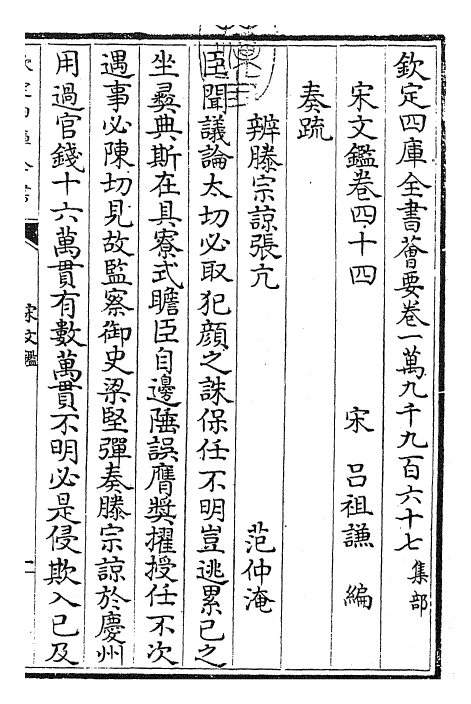 欽定四庫全書薈要卷一萬九千九百六十七 集部
宋文鑑卷四十四 宋 呂祖謙 編
奏疏
辨滕宗諒張亢 范仲淹
臣聞議論太切必取犯顔之誅保任不明豈逃累已之
坐彛典斯在具寮式瞻臣自邊陲誤膺奬擢授任不次
遇事必陳切見故監察御史梁堅彈奏滕宗諒於慶州
用過官錢十六萬貫有數萬貫不明必是侵欺入已及
宋文鑑